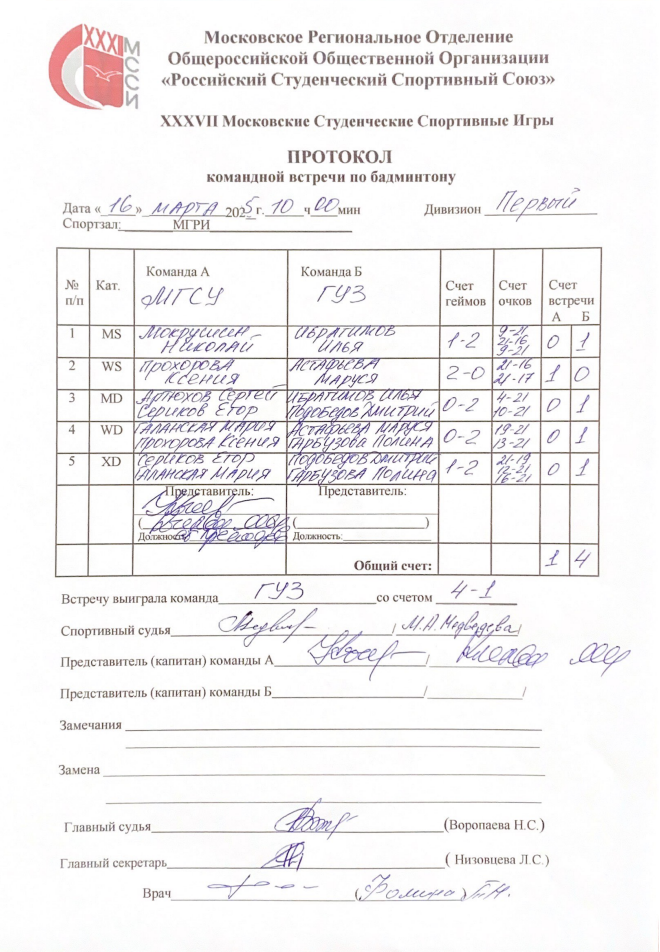 XXXI
МССИ
Московское Региональное Отделение
Общероссийской Общественной Организации
«Российский Студенческий Спортивный Союз»
XXXVII Московские Студенческие Спортивные Игры
ПРОТОКОЛ
командной встречи по бадминтону
Дата «16» МАРТА 2025 г. 10 ч 00 мин Дивизион Первый
Спортзал: МГРИ
№ п/п Кат. Команда А МГСУ Команда Б ГУЗ Счет геймов Счет очков Счет встречи А Б
1 MS Мокрушин Николай ИБРАГИМОВ ИЛЬЯ 1-2 9-21 21-16 9-21 0 1
2 WS ПРОХОРОВА Ксения АСТАФЬЕВА МАРУСЯ 2-0 21-16 21-17 1 0
3 MD Артюхов Сергей Сериков Егор ИБРАГИМОВ ИЛЬЯ Подобедов Дмитрий 0-2 4-21 10-21 0 1
4 WD ГАЛАНСКАЯ МАРИЯ Прохорова Ксения АСТАФЬЕВА МАРУСЯ ГАРБУЗОВА ПОЛИНА 0-2 19-21 13-21 0 1
5 XD Сериков Егор ГАЛАНСКАЯ МАРИЯ Подобедов Дмитрий ГАРБУЗОВА ПОЛИНА 1-2 21-19 12-21 16-21 0 1
Представитель: Представитель:
( ( )
Должность: Должность:
Общий счет: 1 4
Встречу выиграла команда ГУЗ со счетом 4-1
Спортивный судья / М.А. Медведева/
Представитель (капитан) команды А /
Представитель (капитан) команды Б / /
Замечания
Замена
Главный судья (Воропаева Н.С.)
Главный секретарь ( Низовцева Л.С.)
Врач (Фомина) Т.Н.